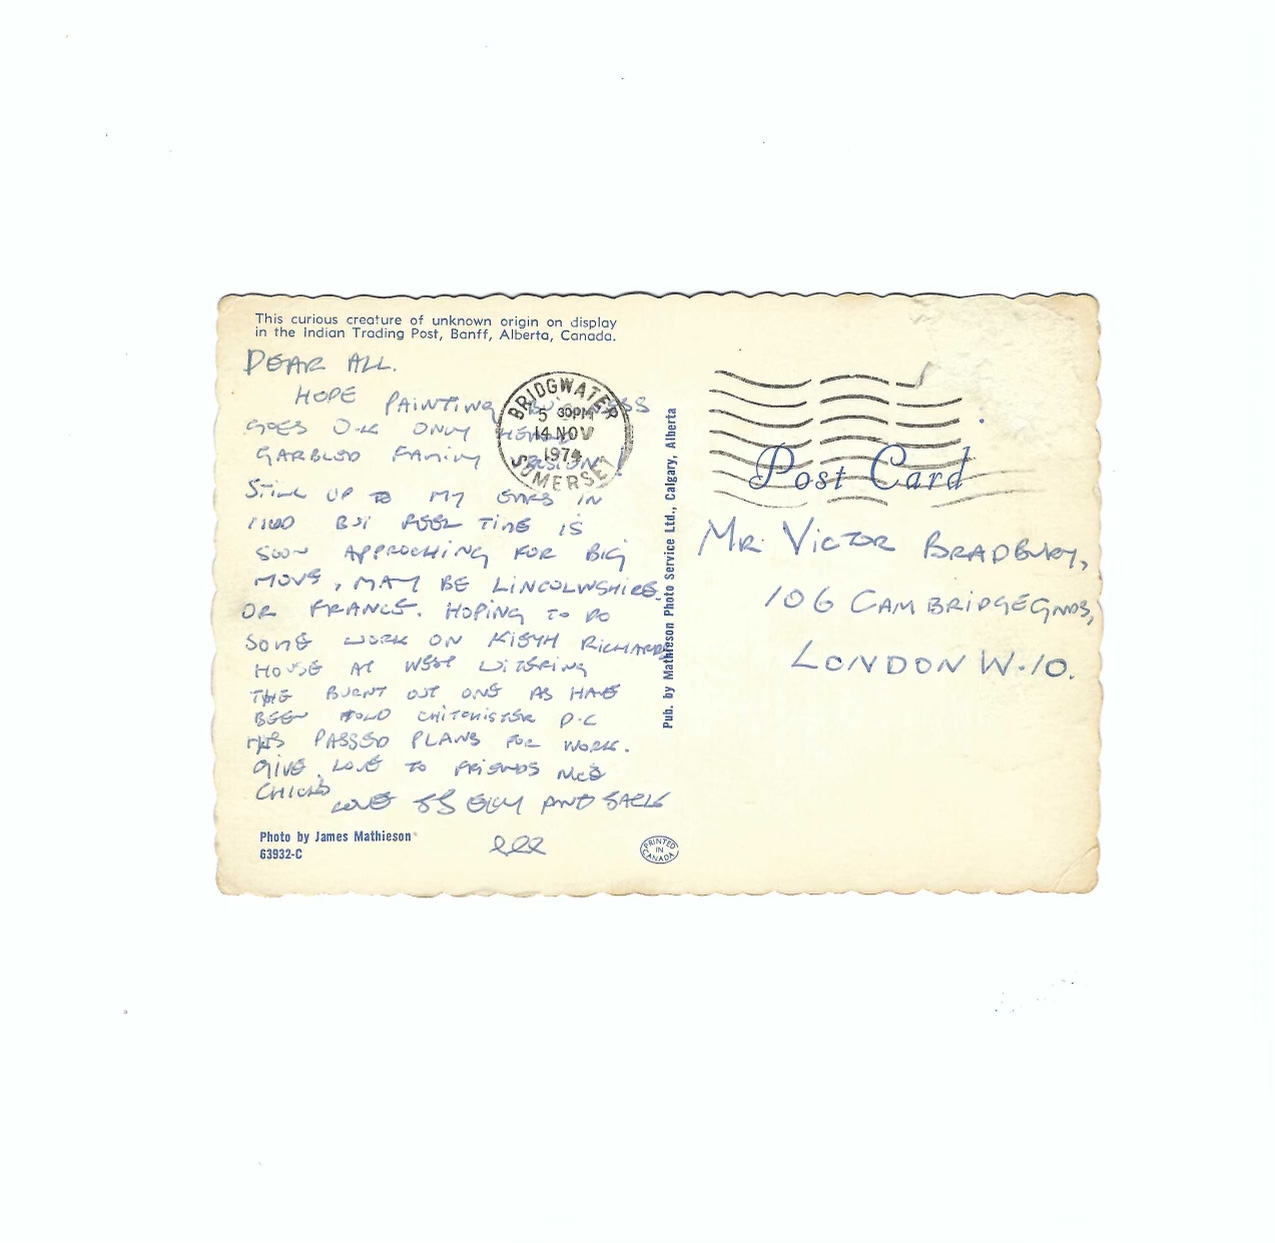 This curious creature of unknown origin on display
in the Indian Trading Post, Banff, Alberta, Canada.
DEAR ALL.
HOPE PAINTING BUSINESS
GOES O.K ONLY HEARD
GARBLED FAMILY VERSION!
STILL UP TO MY EARS IN
MUD BUT FEEL TIME IS
SOON APPROCHING FOR BIG
MOVE, MAY BE LINCOLNSHIRE
OR FRANCE. HOPING TO DO
SOME WORK ON KIETH RICHARDS
HOUSE AT WEST WITERING
THE BURNT OUT ONE AS HAVE
BEEN TOLD CHITCHISTER D.C
HAS PASSED PLANS FOR WORK.
GIVE LOVE TO FRIENDS
LOVE AND
Photo by James Mathieson
63932-C
BRIDGWATER
5 30PM
14 NOV
1974
SOMERSET
Pub. by Mathieson Photo Service Ltd., Calgary, Alberta
Post Card
MR. VICTOR BRADBURY,
106 CAMBRIDGE GNDS,
LONDON W.10.
PRINTED
IN
CANADA